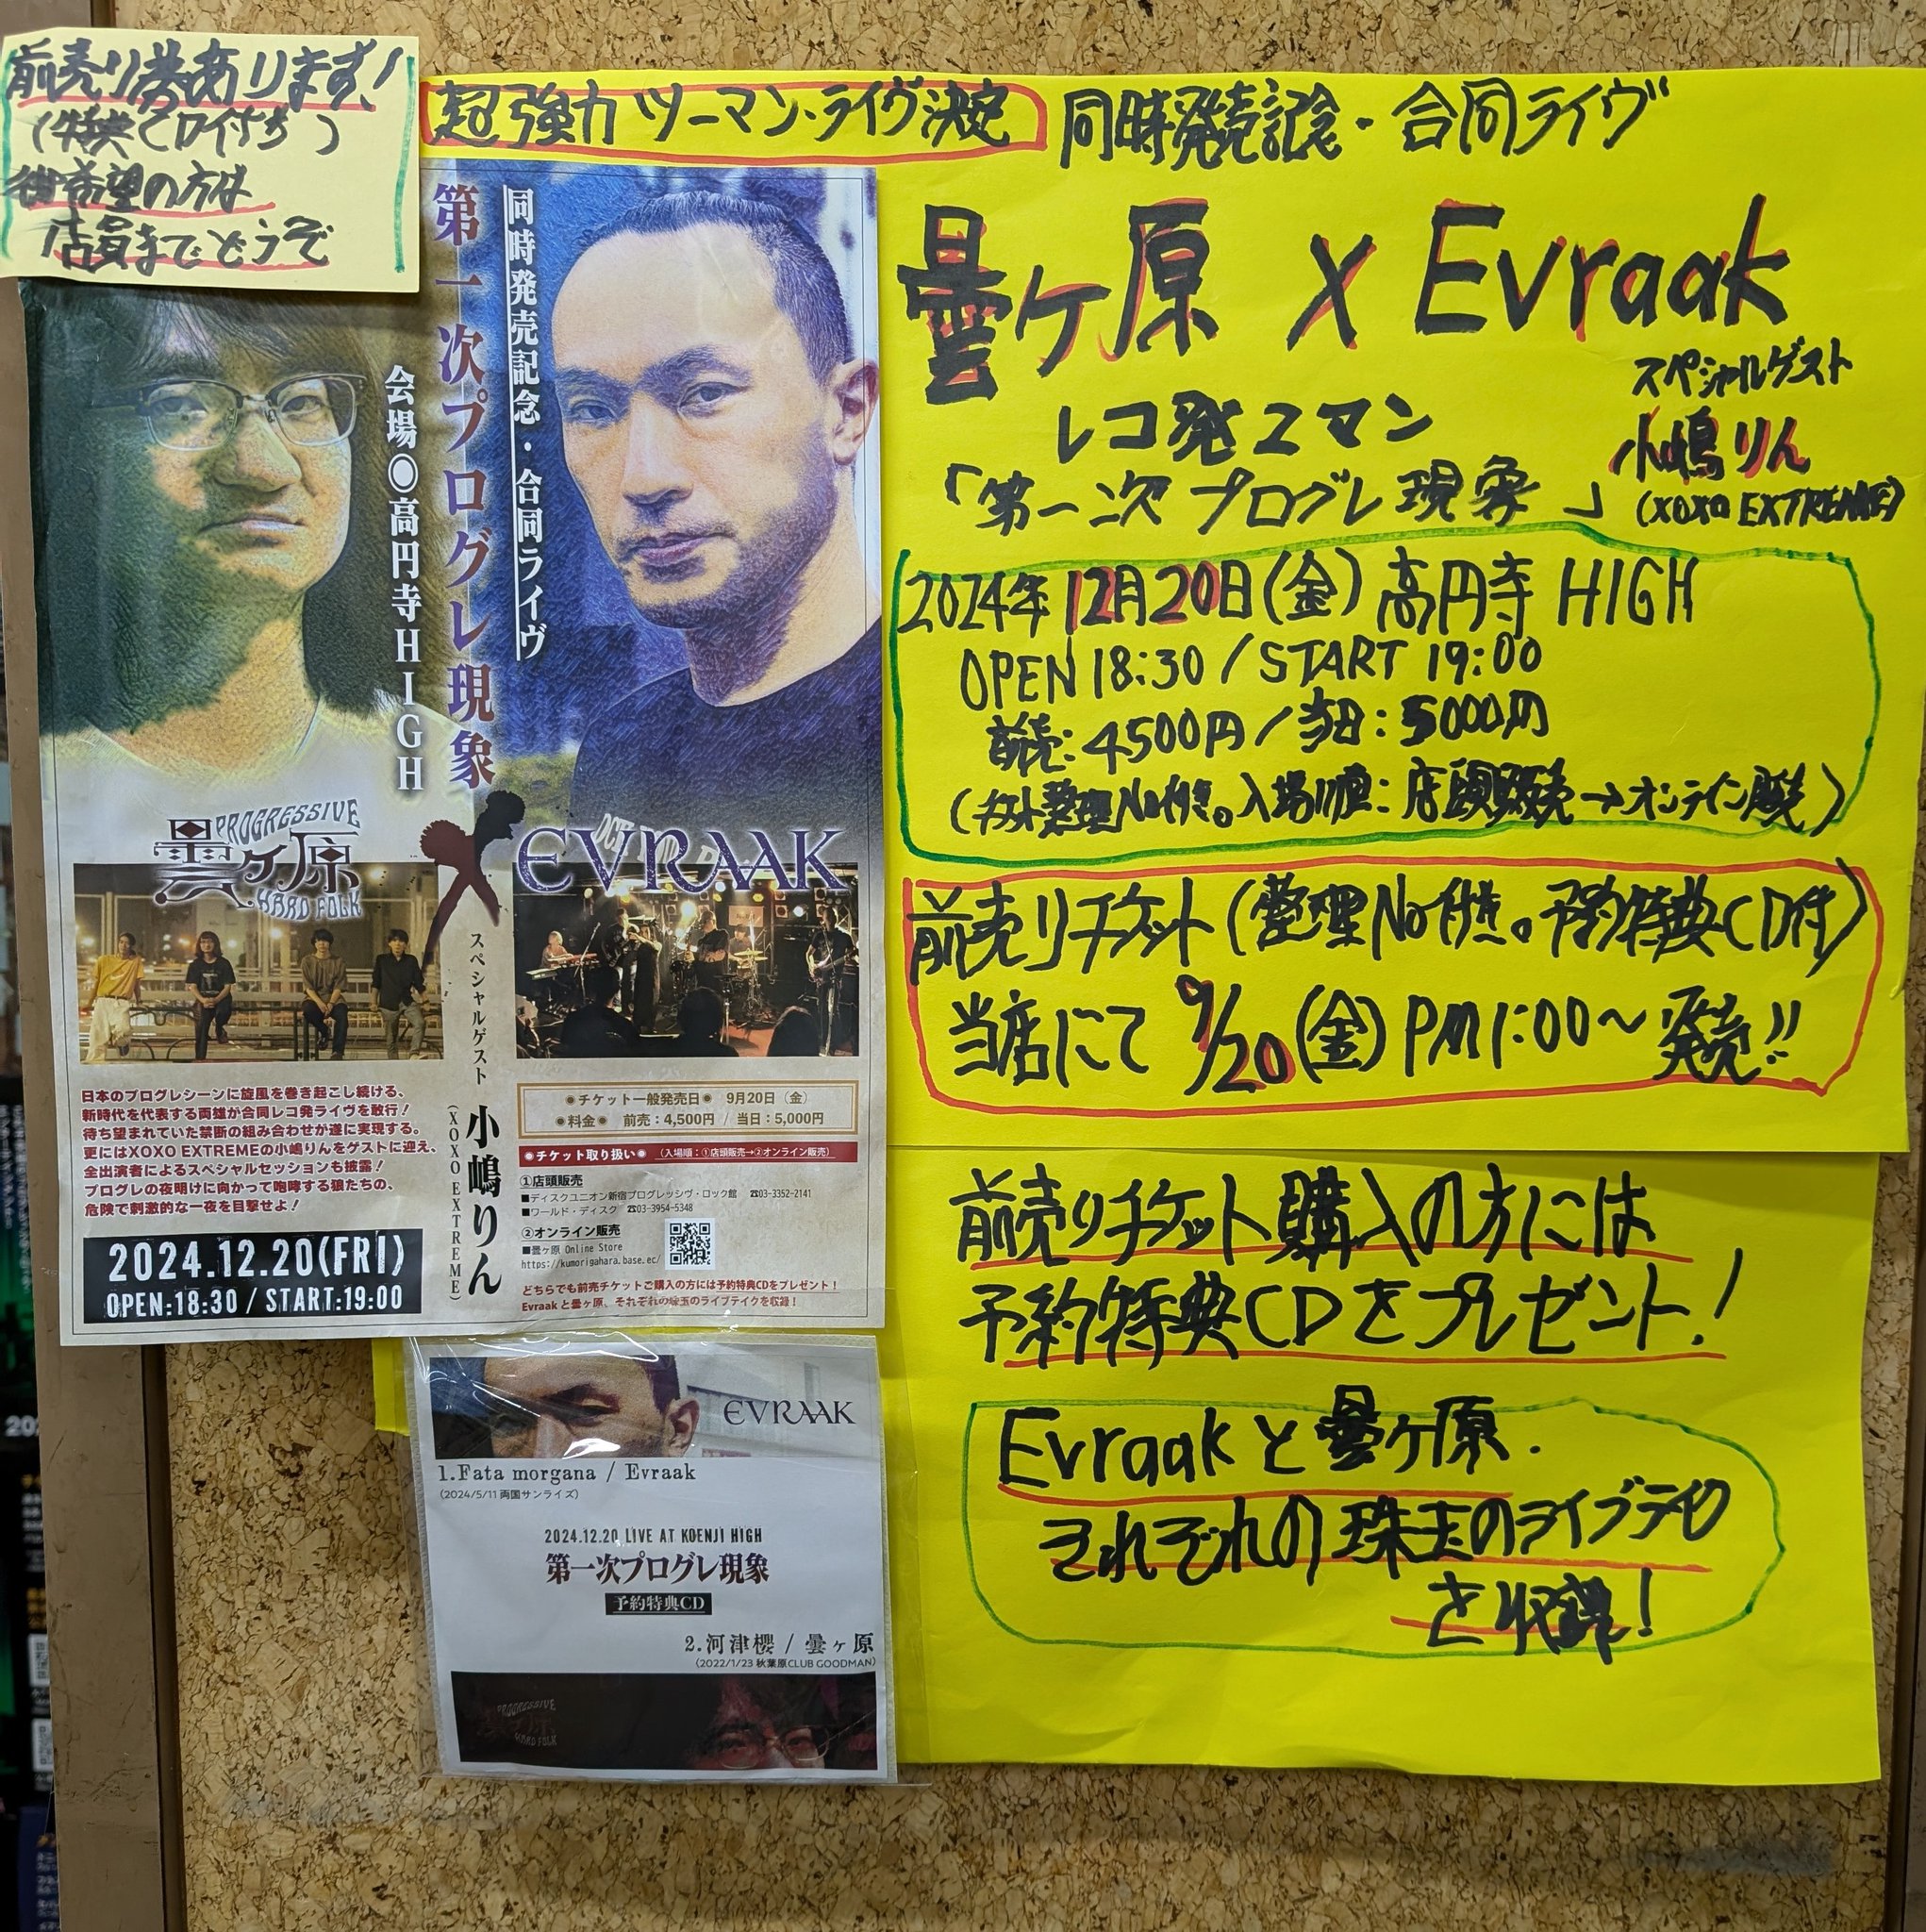 前売り券あります!
(特典CD付き)
御希望の方は
店員までどうぞ
超強力 ツーマン・ライヴ決定
同時発売記念・合同ライヴ
曇ヶ原 X Evraak
レコ発2マン
「第一次プログレ現象」
スペシャルゲスト
小嶋りん
(XOXO EXTREME)
2024年12月20日(金)高円寺 HIGH
OPEN 18:30 / START 19:00
前売:4500円/当日:5000円
(チケット整理No付き。入場順:店頭販売→オンライン販売)
前売りチケット(整理No付き。予約特典CD付)
当店にて 9/20(金)PM1:00〜発売!!
前売りチケット購入の方には
予約特典CDをプレゼント!
Evraakと曇ヶ原.
それぞれの珠玉のライブテイク
を収録!
同時発売記念・合同ライヴ
第一次プログレ現象
会場◎高円寺HIGH
PROGRESSIVE
曇ヶ原
HARD FOLK
X
EVRAAK
スペシャルゲスト
小嶋りん
(XOXO EXTREME)
日本のプログレシーンに旋風を巻き起こし続ける、
新時代を代表する両雄が合同レコ発ライヴを敢行!
待ち望まれていた禁断の組み合わせが遂に実現する。
更にはXOXO EXTREMEの小嶋りんをゲストに迎え、
全出演者によるスペシャルセッションも披露!
プログレの夜明けに向かって咆哮する狼たちの、
危険で刺激的な一夜を目撃せよ!
2024.12.20(FRI)
OPEN:18:30 / START:19:00
◉チケット一般発売日◉ 9月20日(金)
◉料金◉ 前売:4,500円 / 当日:5,000円
◉チケット取り扱い◉ (入場順:①店頭販売→②オンライン販売)
①店頭販売
■ディスクユニオン新宿プログレッシヴ・ロック館 ☎03-3352-2141
■ワールド・ディスク ☎03-3954-5348
②オンライン販売
■曇ヶ原 Online Store
https://kumorigahara.base.ec/
どちらでも前売チケットご購入の方には予約特典CDをプレゼント!
Evraakと曇ヶ原、それぞれの珠玉のライブテイクを収録!
EVRAAK
1.Fata morgana / Evraak
(2024/5/11 両国サンライズ)
2024.12.20 LIVE AT KOENJI HIGH
第一次プログレ現象
予約特典CD
2.河津櫻 / 曇ヶ原
(2022/1/23 秋葉原CLUB GOODMAN)
PROGRESSIVE
曇ヶ原
HARD FOLK